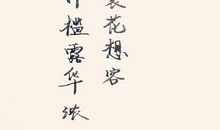 裳花想容
槛露华浓